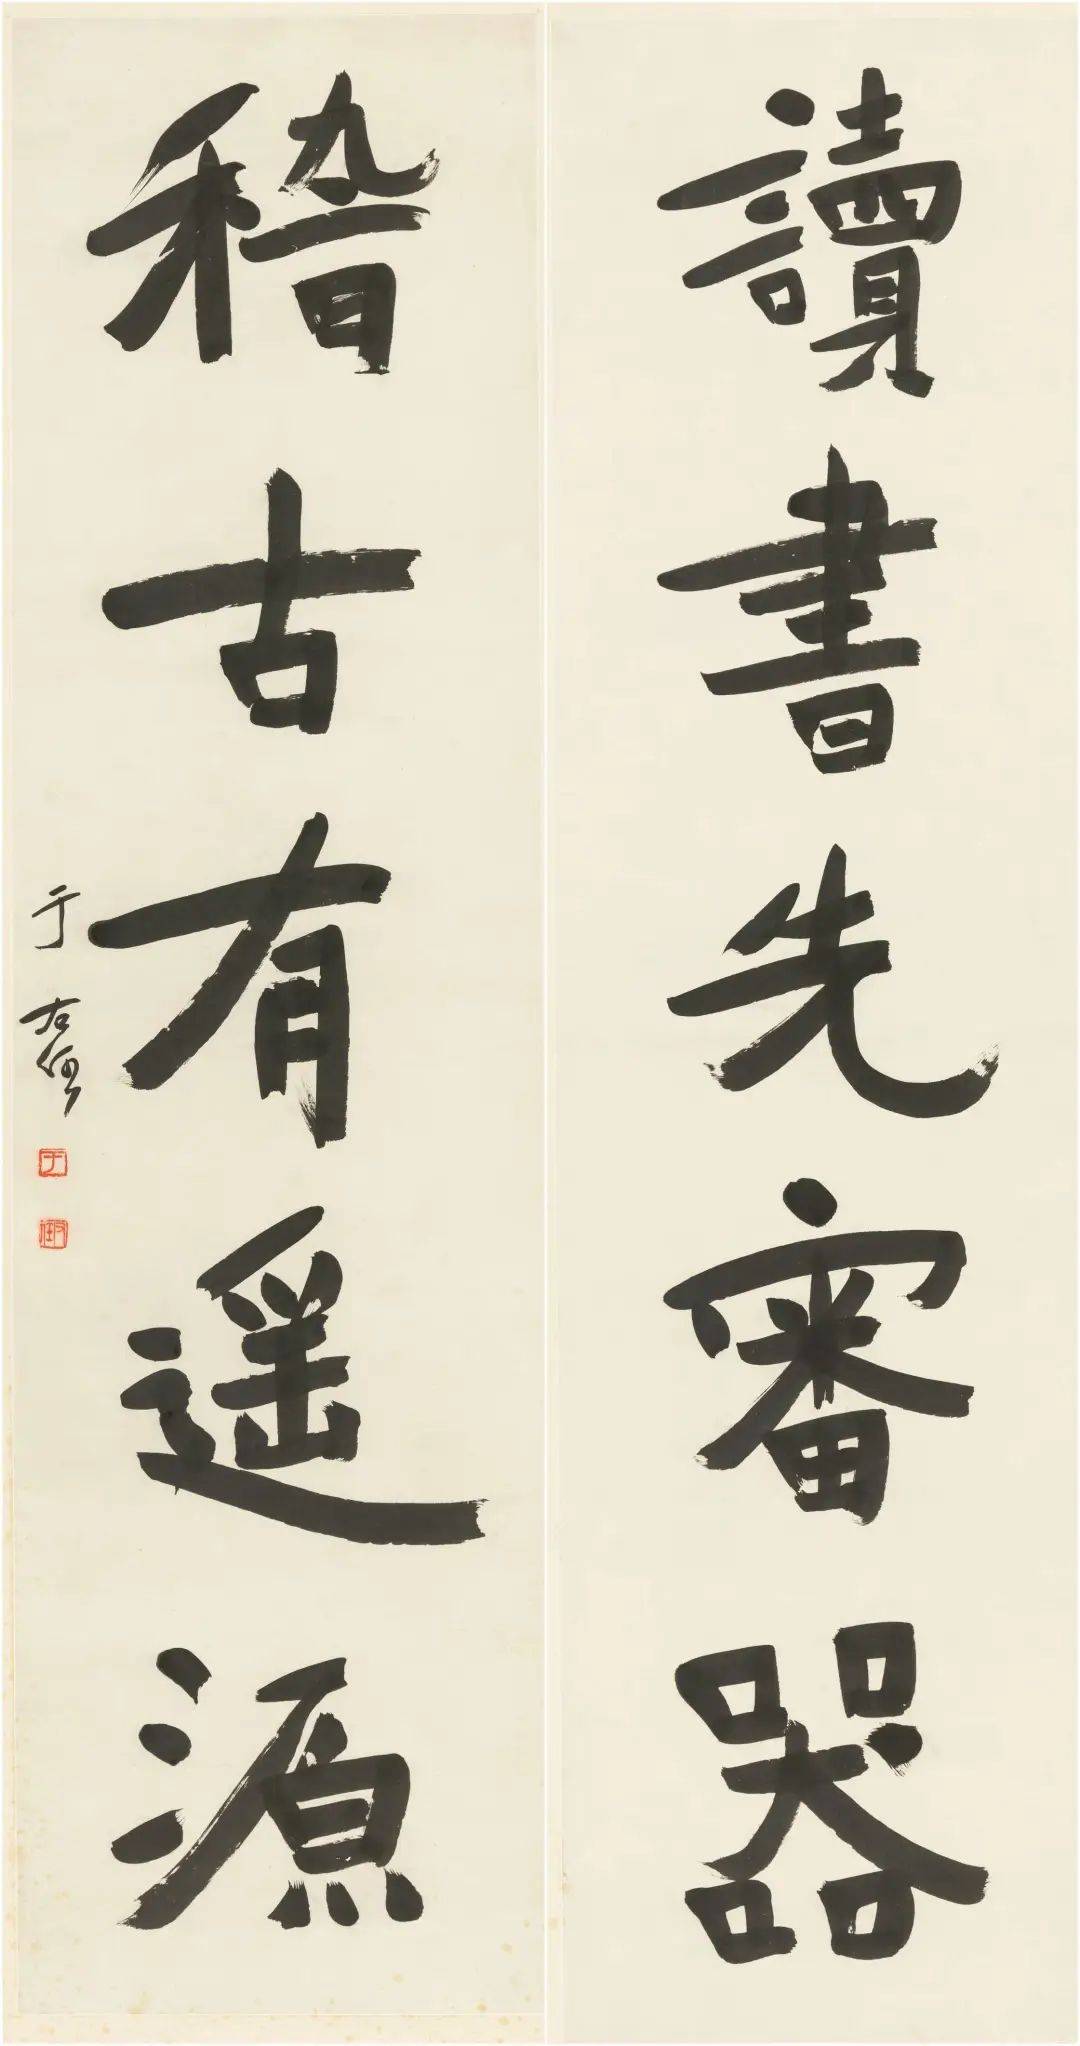 讀書先審器
稽古有遥源
于右任